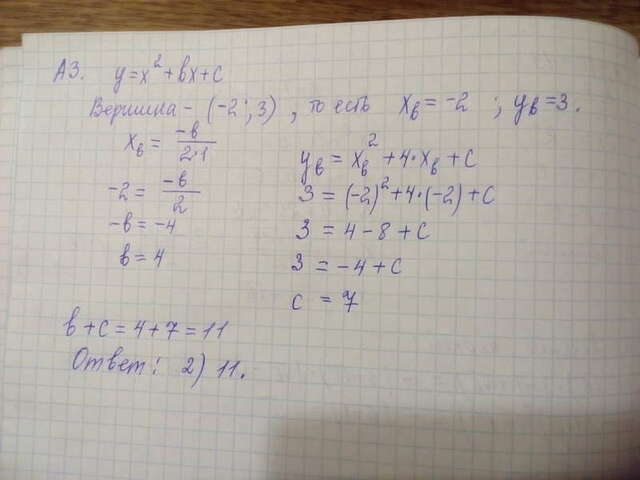 А3. y = x² + bx + c
Вершина - (-2; 3), то есть xв = -2 ; yв = 3.
xв = -b/2·1
-2 = -b/2
-b = -4
b = 4
yв = xв² + 4·xв + c
3 = (-2)² + 4·(-2) + c
3 = 4 - 8 + c
3 = -4 + c
c = 7
b + c = 4 + 7 = 11
Ответ: 2) 11.